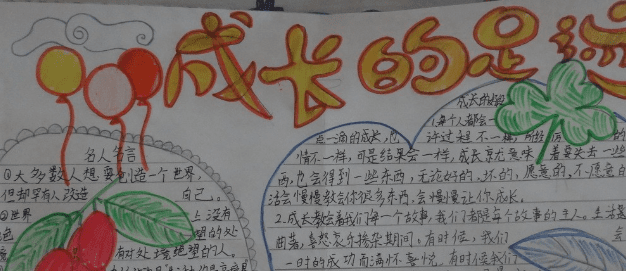 成长的足迹
名人名言
①大多数人想要创造一个世界,
但却罕有人改造 自己。
②世界 上没有
色 望的处
有对处境绝望的人。
成长的
每个人都会
一滴的成长,也 许过程不一样,所经
情不一样,可是结果会一样,成长意味 着要失去一些
西,也会得到一些东西,无论好的、坏的,愿意的,不愿意的
活会慢慢教会你很多东西,会慢慢让你成长。
2.成长教会着我们每一个故事,我们都是每个故事的主人。生活是
曲荡,喜怒哀乐掺杂期间,有时候,我们 会
一时的成功而满怀喜悦,有时候我们